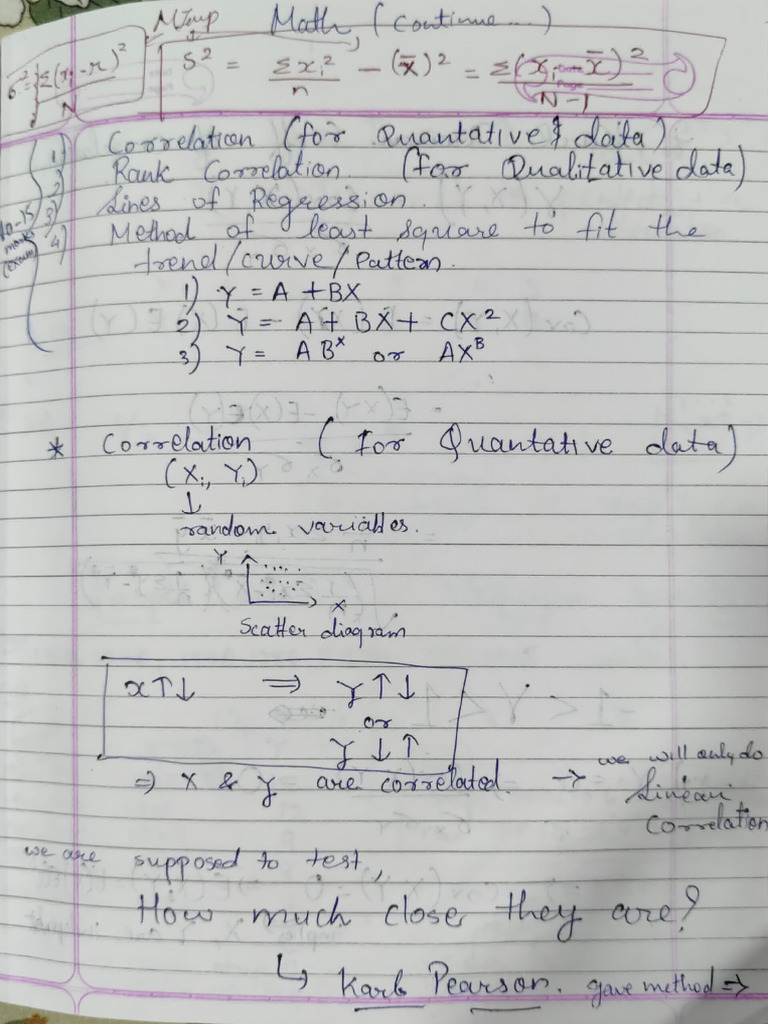 MImp
Math (Continue...)
σ² = Σ(xi - x)² / N
S² = Σxi² / n - (x̄)² = Σ(xi - x̄)² / N-1
1) Correlation (for Quantative data)
2) Rank Correlation. (for Qualitative data)
3) Lines of Regression.
4) Method of least square to fit the
trend/curve/Pattern.
10-15
marks
(exam)
1) Y = A + BX
2) Y = A + BX + CX²
3) Y = AB^x or AX^B
* Correlation (for Quantative data)
(Xi, Yi)
↓
random variables.
Y
X
Scatter diagram
x↑↓ ⇒ y↑↓
or
y↓↑
⇒ X & y are correlated. → we will only do
Linear
Correlation
we are supposed to test,
How much close they are?
↳ Karl Pearson. gave method ⇒